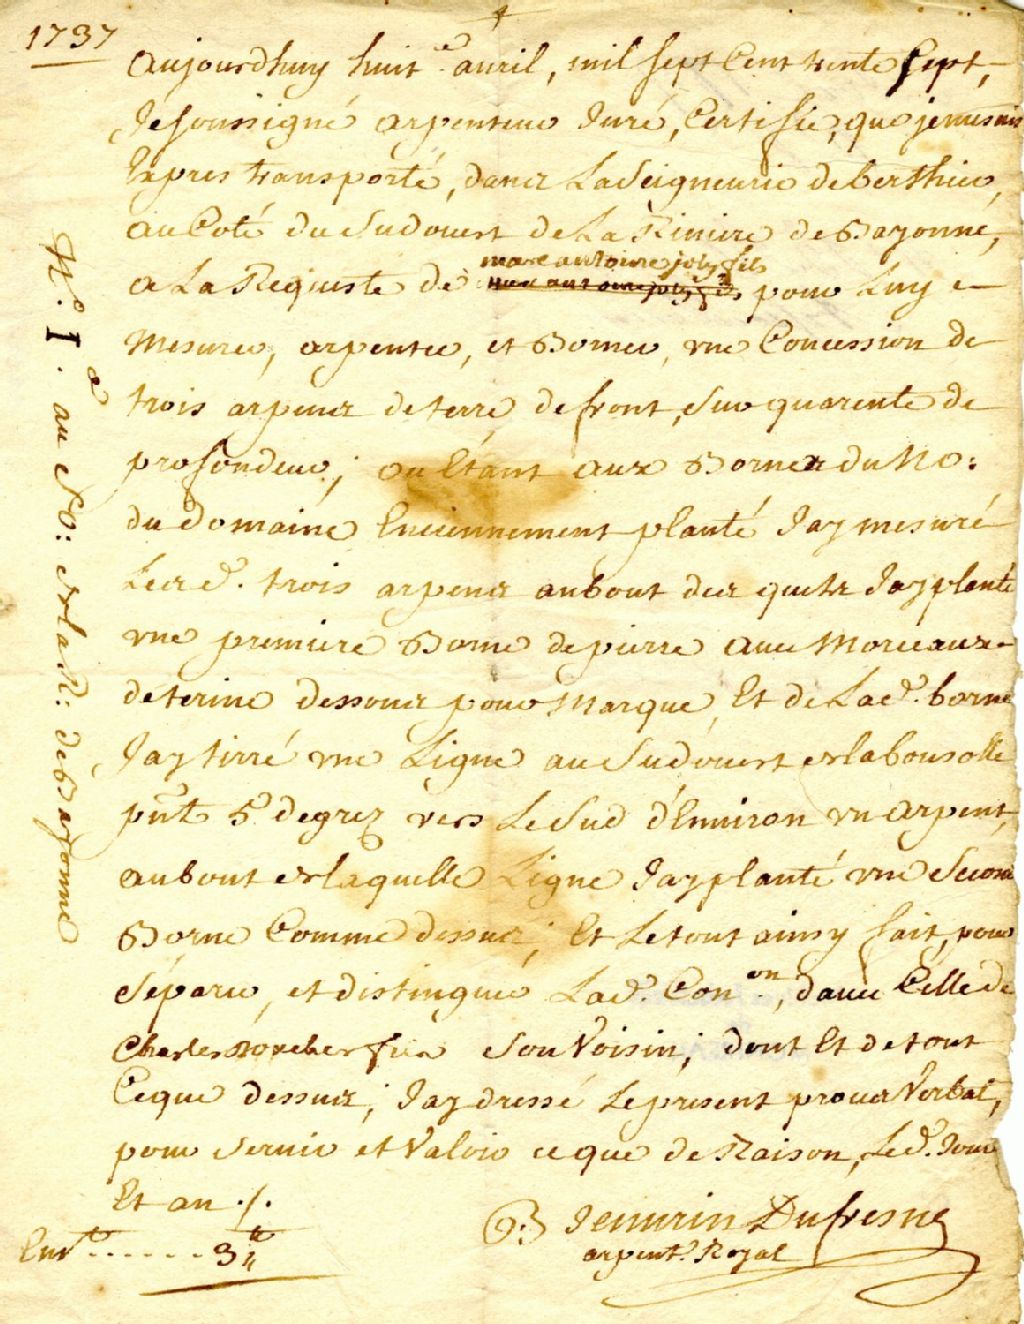 1737
aujourdhuy huit.e avril, mil sept Cent trente sept,
Je soussigné arpenteur Juré, Certifie, que je me suis
Expres transporté, dans La Seigneurie de berthier,
au Coté du Sudouest de La Riviere de Bayonne,
a La Requeste de marc antoine joly fils pour Luy
Mesurer, arpenter, et Borner, une Concession de
trois arpens de terre de front, sur quarente de
profondeur; ou Etant aux Bornes du No:
du Domaine Enciennement planté Jay mesuré
Les d. trois arpens au bout des quels Jay planté
une premiere Borne de pierre avec Morceaux
de terine dessous pour Marque, Et de Lad. borne
Jay tirré une Ligne au Sudouest et la bousolle
pnt. 5 degrez vers Le Sud d'Environ un arpent,
au bout de laquelle Ligne Jay planté une Second
Borne Comme dessus; Et Le tout ainsy fait, pour
Séparer, et distinguer Lad. Con.on, davec Celle de
Charles son Voisin; dont Et de tout
Ceque dessus, Jay dressé Le present procès Verbal,
pour Servir et Valoir ceque de Raison, Led. Jour
Et an ./.
Jeanvrin Dufresne
arpent. Royal
3
N.o 1. au So: de la R: de Bayonne